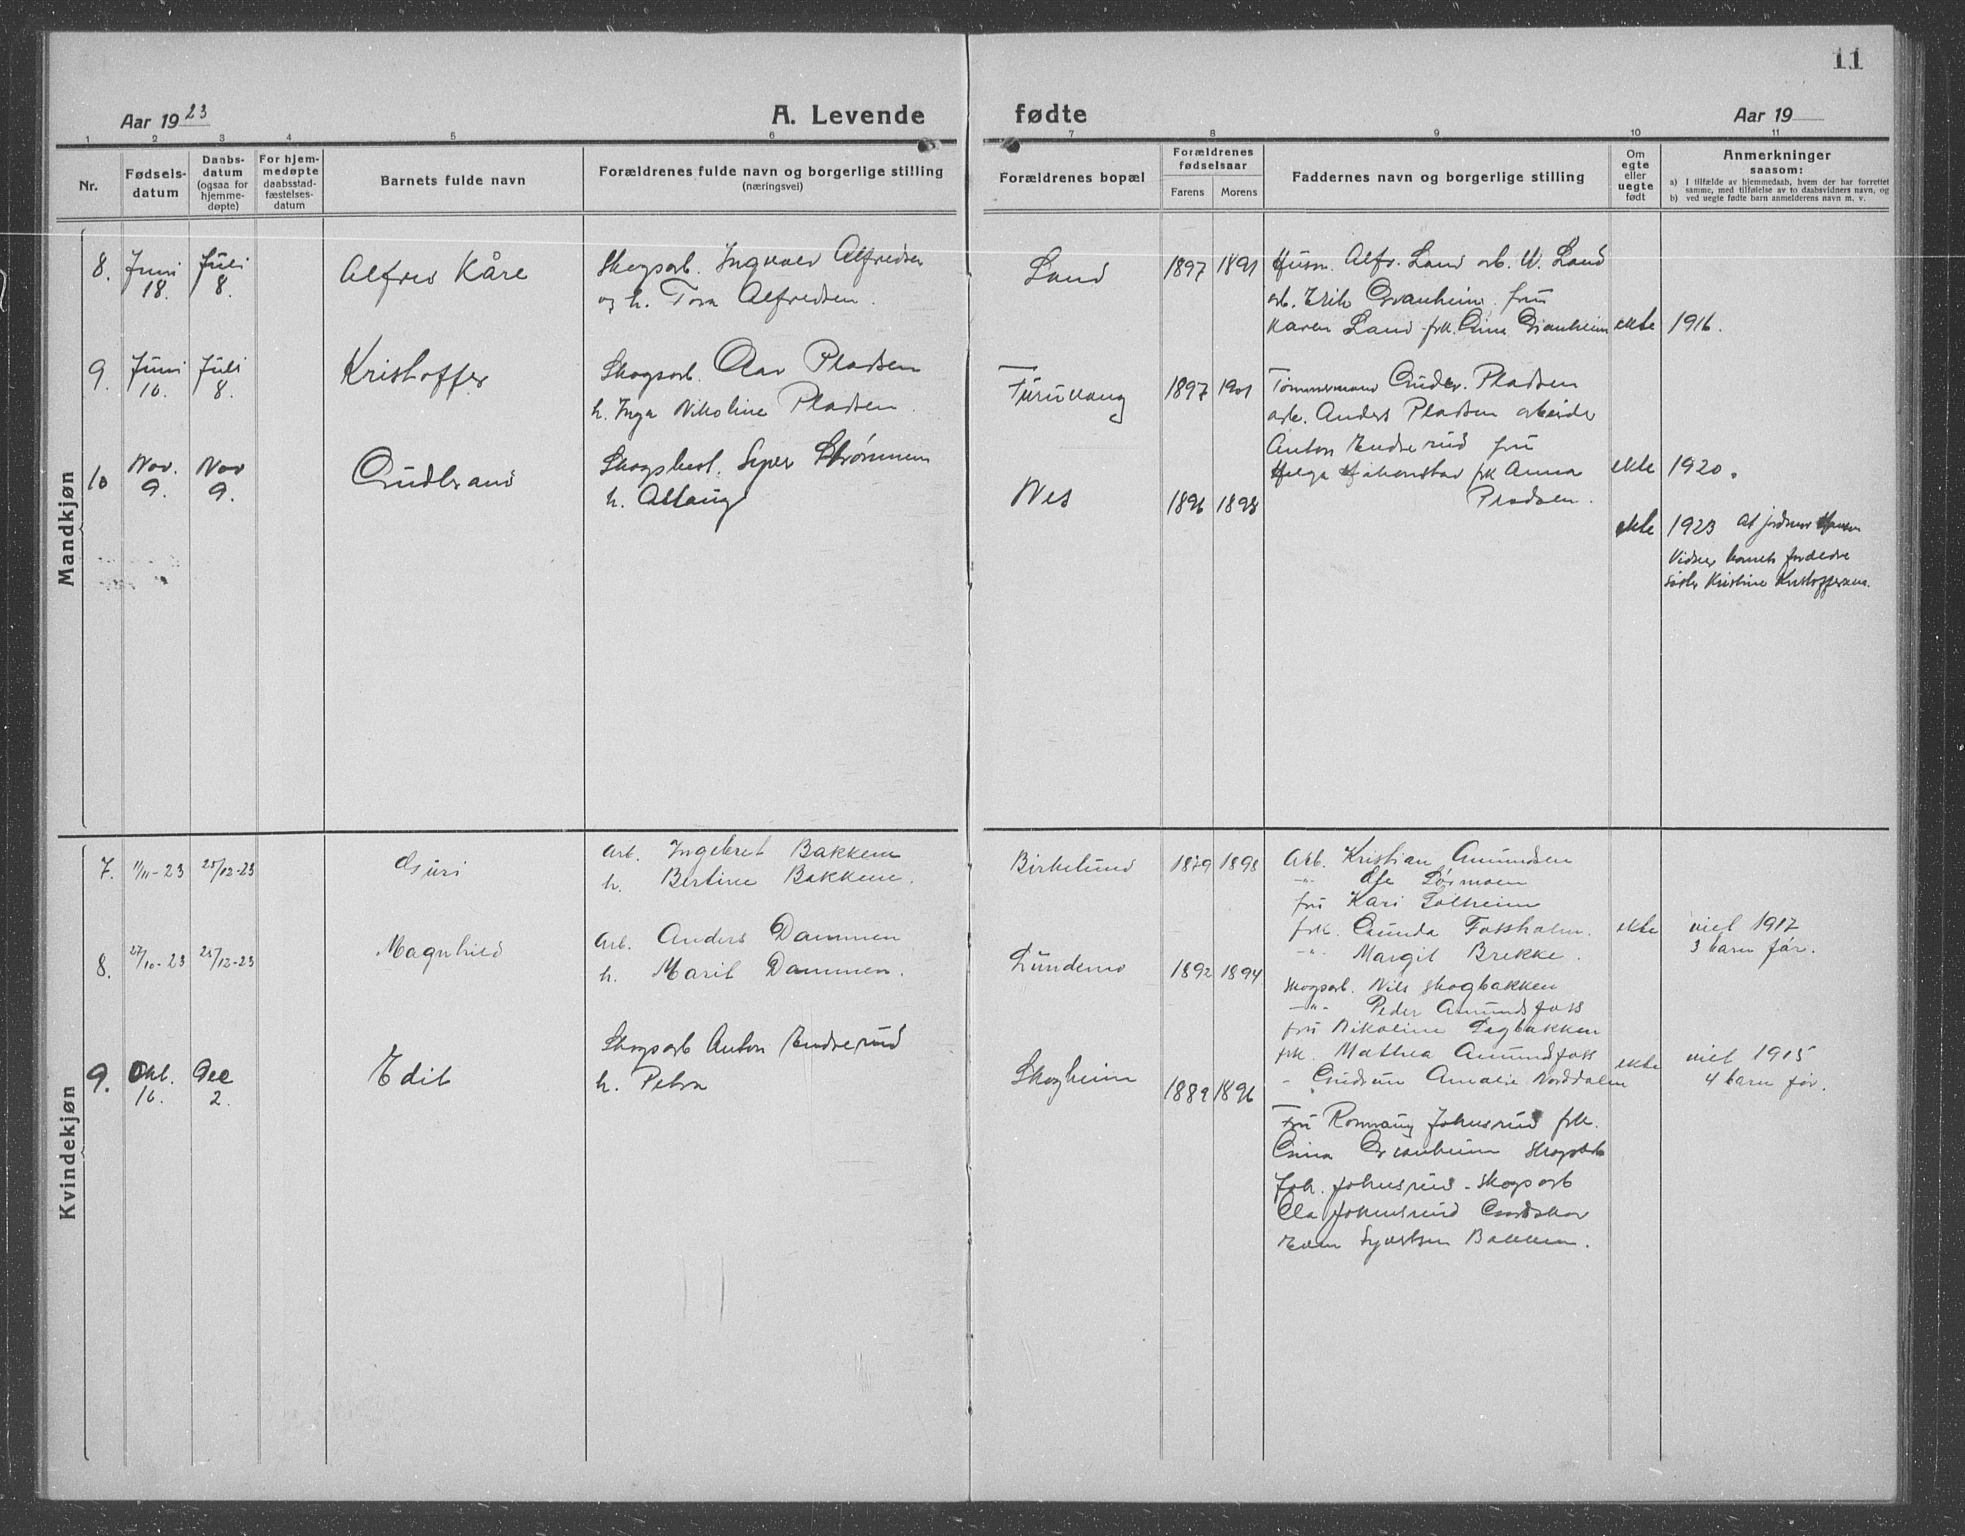 11
Aar 1923 A. Levende fødte Aar 19
1 2 3 4 5 6 7 8 9 10 11
Nr.
Fødsels-
datum
Daabs-
datum
(ogsaa for
hjemme-
døpte)
For hjem-
medøpte
daabsstad-
fæstelses-
datum
Barnets fulde navn
Forældrenes fulde navn og borgerlige stilling
(næringsvei)
Forældrenes bopæl
Forældrenes
fødselsaar
Farens Morens
Faddernes navn og borgerlige stilling
Om
egte
eller
uegte
født
Anmerkninger
saasom:
a) I tilfælde av hjemmedaab, hvem der har forrettet
samme, med tilføielse av to daabsvidners navn, og
b) ved uegte fødte barn anmelderens navn m. v.
Mandkjøn
8. Juni
18.
Juli
8.
Alfred Kåre
Skogsarb. Ingvald Alfredsen
og h. Tora Alfredsen.
Land
1897 1891
Husm. Alfr. Land arb. W. Land
arb. Erik Granheim fru
Karen Land frk. Gina Granheim
ekte 1916.
9. Juni
10.
Juli
8.
Kristoffer
Skogsarb. Olav Pladsen
h. Inga Nikoline Pladsen.
Furuvang
1897 1901
Tømmermand Gudbr. Pladsen
arb. Anders Pladsen arbeider
Anton Endrerud fru
Helga Håkenstad frk Anna
Pladsen.
ekte 1920.
10 Nov.
9.
Nov
9.
Gudbrand
Skogsbest. Syver Strømmen
h. Aslaug
Nes
1896 1898
ekte 1923 At jordmor Hansen
Vidner barnets forældre
Søster Kristine Kristoffersen.
Kvindekjøn
7. 11/11-23 25/12-23
Guri
Arb. Ingebret Bakkene
h. Bertine Bakkene.
Birkelund
1879 1898
Arb. Kristian Amundsen
-"- Ole Sørmoen
fru Kari Solheim
frk. Gunda Fossholm.
-"- Margit Brekke.
ekte viet 1917
3 barn før.
8. 27/10-23 25/12-23
Magnhild
Arb. Anders Dammen
h. Marit Dammen.
Lundemo
1892 1894
Skogsarb. Nils Skogbakken
-"- Peder Amundsfoss
fru Nikoline Dagbakken
frk. Mathea Amundsfoss
-"- Gudrun Amalie Norddalen
ekte viet 1915
4 barn før.
9. Okt.
16.
Dec
2.
Edit
Skogsarb Anton Endrerud
h. Petra
Skogheim
1889 1896
Fru Ronnaug Johnsrud frk.
Gina Granheim skogsarb
Joh. Johnsrud - skogsarb
Ola Johnsrud Gaardskar
Syvertsen Bakken.